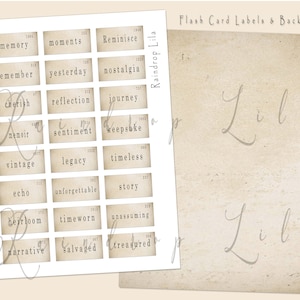 Flash Card Labels & Back
memory moments Reminisce
remember yesterday nostalgia
cherish reflection journey
sentiment keepsake
vintage legacy timeless
echo unforgettable story
heirloom timeworn unassuming
narrative salvaged treasured
Raindrop Lila
Raindrop Lil
Lil
Raindrop Lil